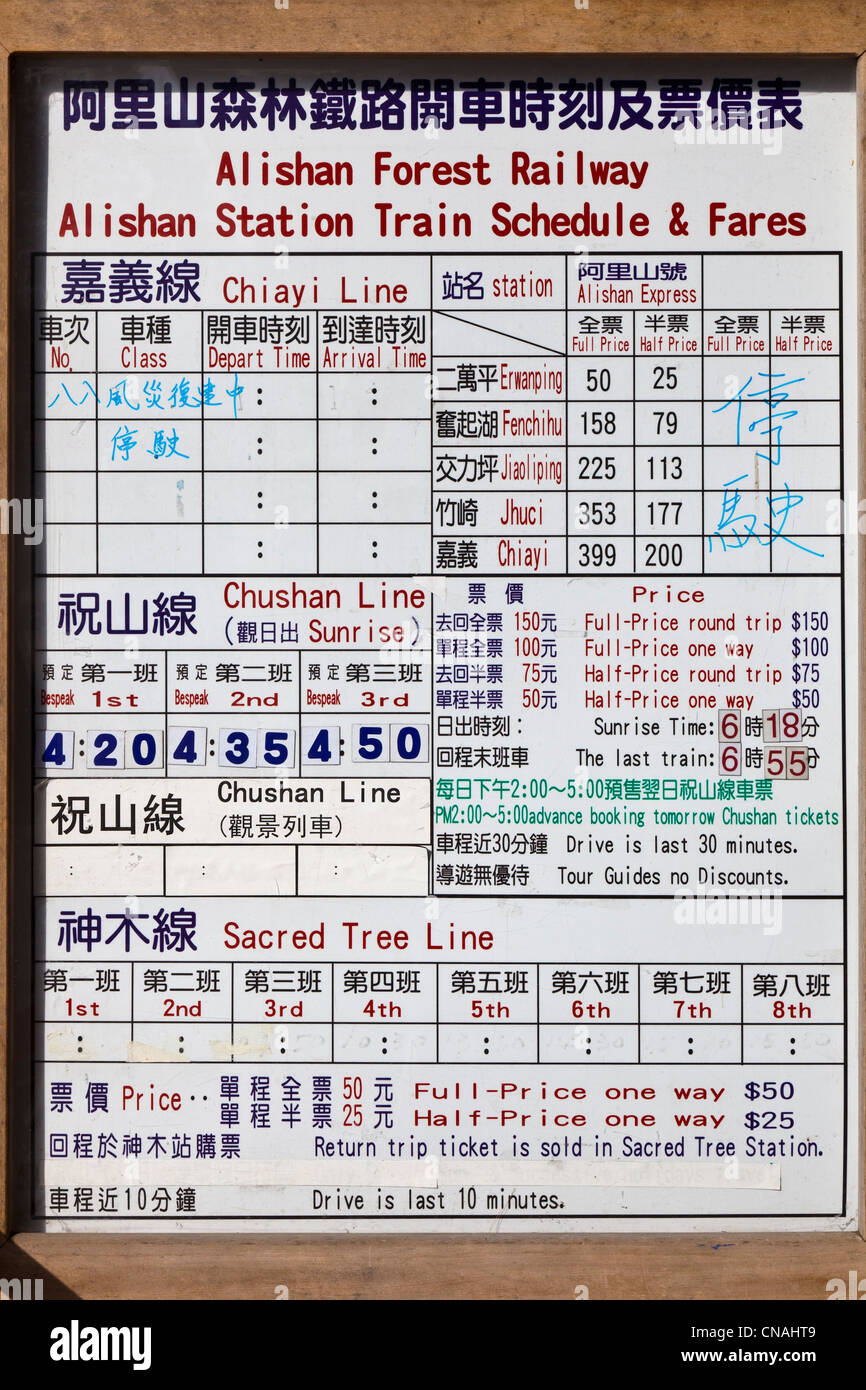 阿里山森林鐵路開車時刻及票價表
Alishan Forest Railway
Alishan Station Train Schedule & Fares
嘉義線 Chiayi Line
車次 車種 開車時刻 到達時刻
No. Class Depart Time Arrival Time
八八風災復建中 : :
停駛 : :
: :
: :
站名 station 阿里山號
Alishan Express
全票 半票 全票 半票
Full Price Half Price Full Price Half Price
二萬平 Erwanping 50 25
奮起湖 Fenchihu 158 79
交力坪 Jiaoliping 225 113
竹崎 Jhuci 353 177
嘉義 Chiayi 399 200
停駛
祝山線 Chushan Line
(觀日出 Sunrise)
預定 第一班 預定 第二班 預定 第三班
Bespeak 1st Bespeak 2nd Bespeak 3rd
4:20 4:35 4:50
祝山線 Chushan Line
(觀景列車)
: : :
票價 Price
去回全票 150元 Full-Price round trip $150
單程全票 100元 Full-Price one way $100
去回半票 75元 Half-Price round trip $75
單程半票 50元 Half-Price one way $50
日出時刻: Sunrise Time: 6時18分
回程末班車 The last train: 6時55分
每日下午2:00~5:00預售翌日祝山線車票
PM2:00~5:00advance booking tomorrow Chushan tickets
車程近30分鐘 Drive is last 30 minutes.
導遊無優待 Tour Guides no Discounts.
神木線 Sacred Tree Line
第一班 第二班 第三班 第四班 第五班 第六班 第七班 第八班
1st 2nd 3rd 4th 5th 6th 7th 8th
: : : : : : : :
票價 Price‥ 單程全票 50 元 Full-Price one way $50
單程半票 25 元 Half-Price one way $25
回程於神木站購票 Return trip ticket is sold in Sacred Tree Station.
車程近10分鐘 Drive is last 10 minutes.
alamy
Image ID: CNAHT9
www.alamy.com